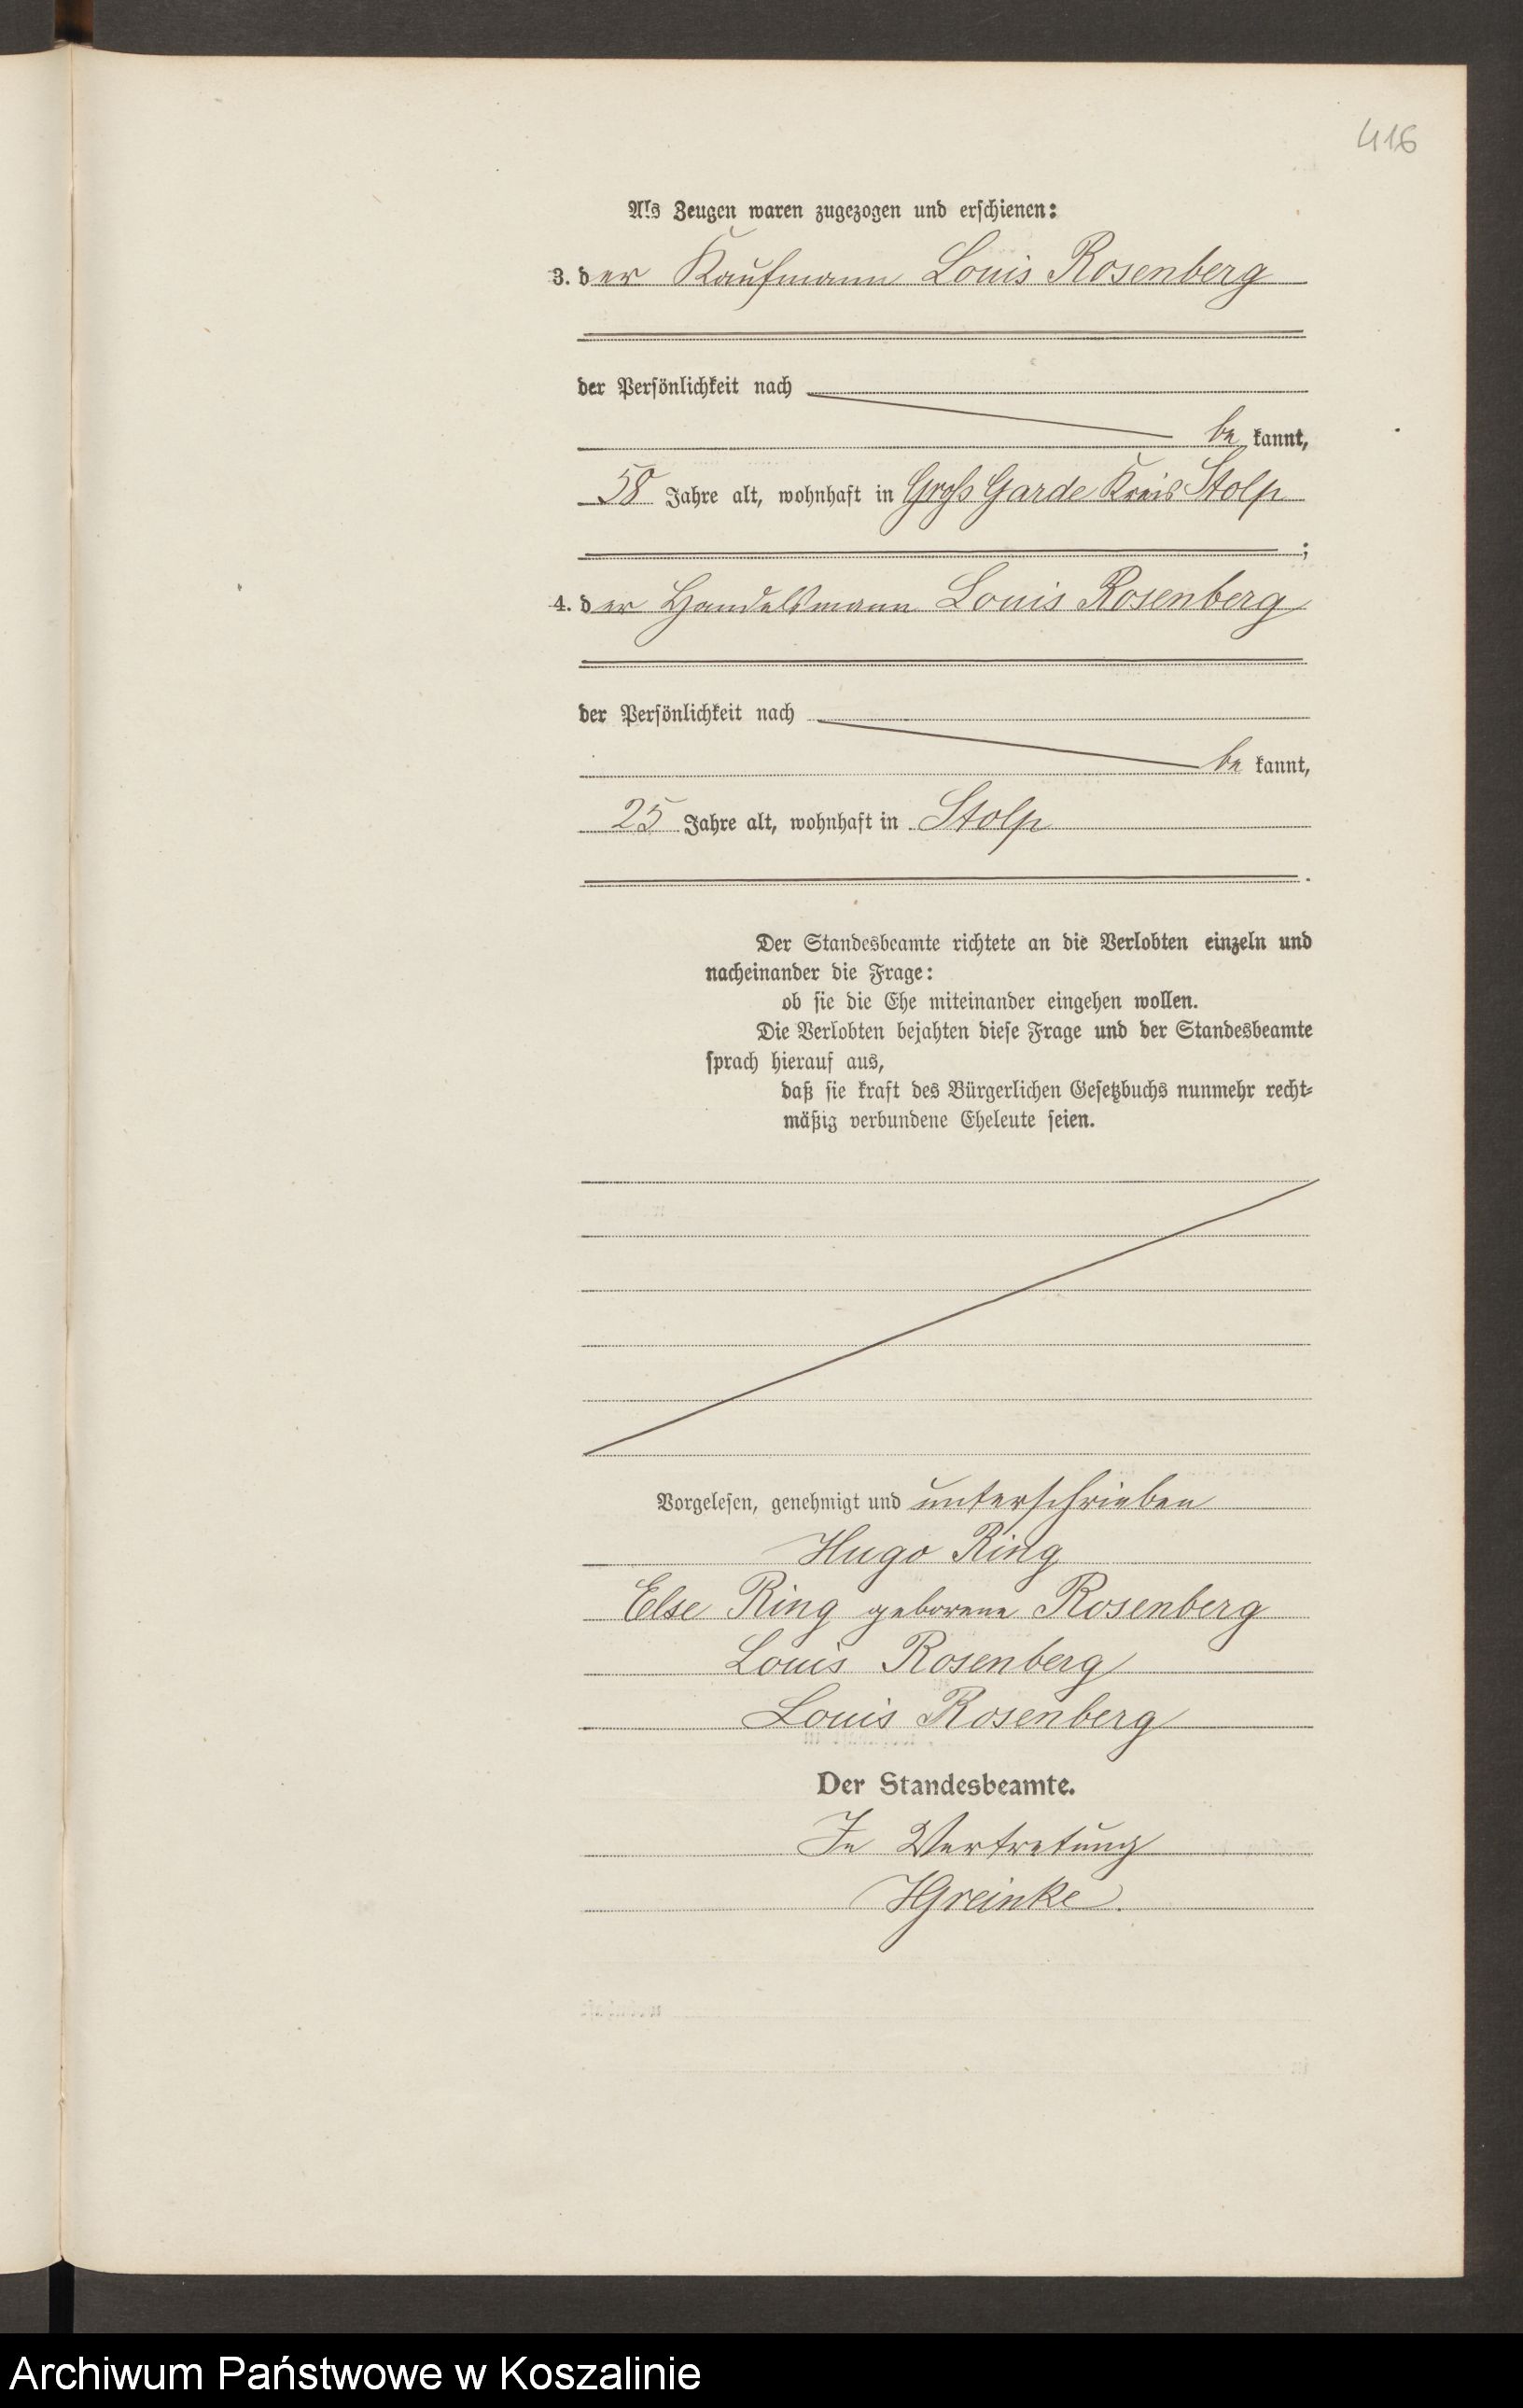 416
Als Zeugen waren zugezogen und erschienen:
3. der Kaufmann Louis Rosenberg
der Persönlichkeit nach
be kannt,
58 Jahre alt, wohnhaft in Groß Garde Kreis Stolp
;
4. der Handelsmann Louis Rosenberg
der Persönlichkeit nach
be kannt,
25 Jahre alt, wohnhaft in Stolp
.
Der Standesbeamte richtete an die Verlobten einzeln und
nacheinander die Frage:
ob sie die Ehe miteinander eingehen wollen.
Die Verlobten bejahten diese Frage und der Standesbeamte
sprach hierauf aus,
daß sie kraft des Bürgerlichen Gesetzbuchs nunmehr recht-
mäßig verbundene Eheleute seien.
Vorgelesen, genehmigt und unterschrieben
Hugo Ring
Else Ring geborene Rosenberg
Louis Rosenberg
Louis Rosenberg
Der Standesbeamte.
In Vertretung
HGreinke.
Archiwum Państwowe w Koszalinie